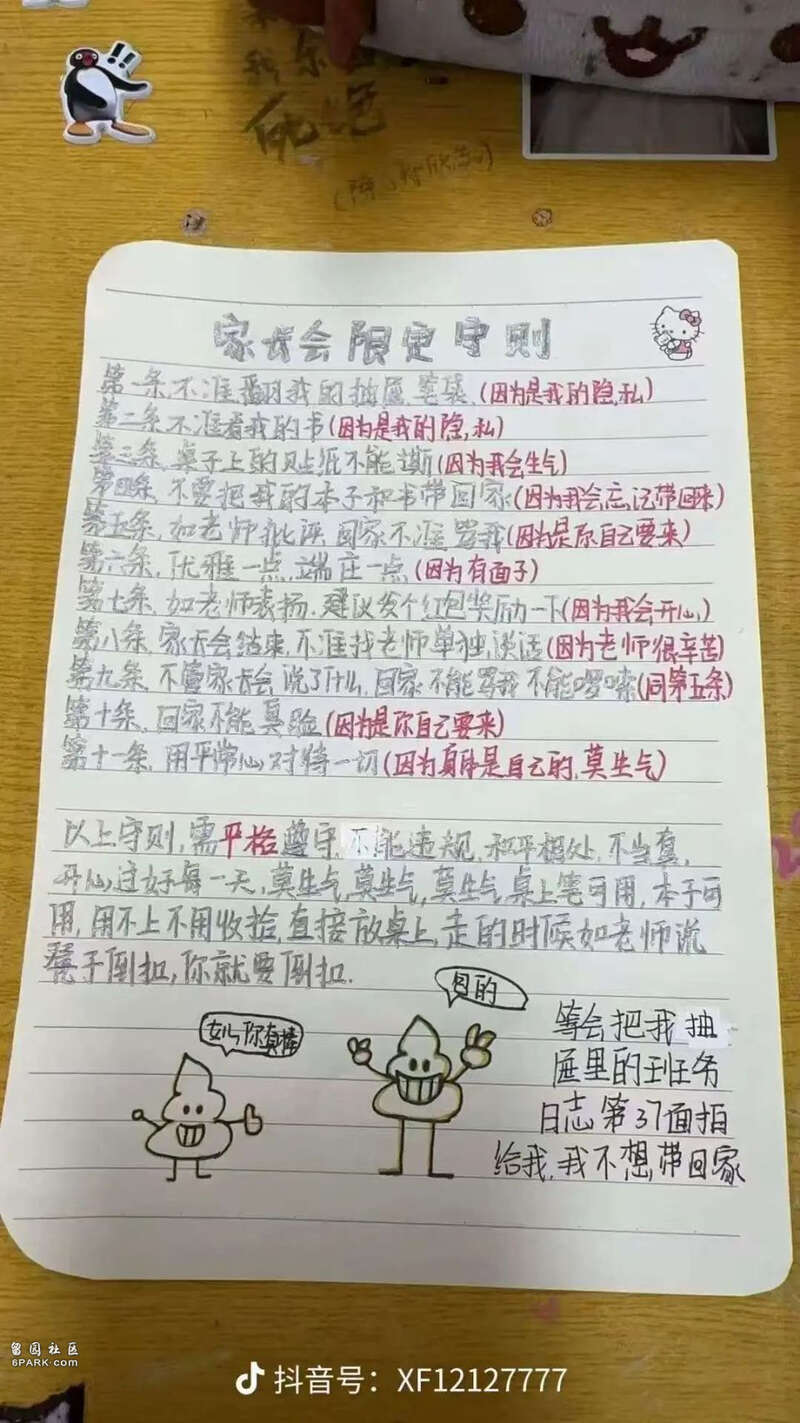 我
死绝
家长会限定守则
第一条.不准翻我的抽屉笔袋.(因为是我的隐私)
第二条.不准看我的书(因为是我的隐私)
第三条.桌子上的贴纸不能撕(因为我会生气)
第四条.不要把我的本子和书带回家(因为我会忘记带回来)
第五条.如老师批评回家不准骂我(因为是你自己要来)
第六条.优雅一点,端庄一点(因为有面子)
第七条.如老师表扬.建议发个红包奖励一下(因为我会开心)
第八条.家长会结束,不准找老师单独谈话(因为老师很辛苦)
第九条.不管家长会说了什么,回家不能骂我不能啰嗦(同第五条)
第十条.回家不能臭脸(因为是你自己要来)
第十一条.用平常心对待一切(因为身体是自己的,莫生气)
以上守则,需平格遵守,不能违规,和平相处,不当真,
开心过好每一天,莫生气,莫生气,莫生气,桌上笔可用,本子可
用,用不上不用收拾,直接放桌上,走的时候如老师说
凳子倒扣,你就要倒扣.
女儿你真棒
包的
等会把我抽
屉里的班务
日志第37面拍
给我,我不想带回家
留园社区
6PARK.com
抖音号：XF12127777